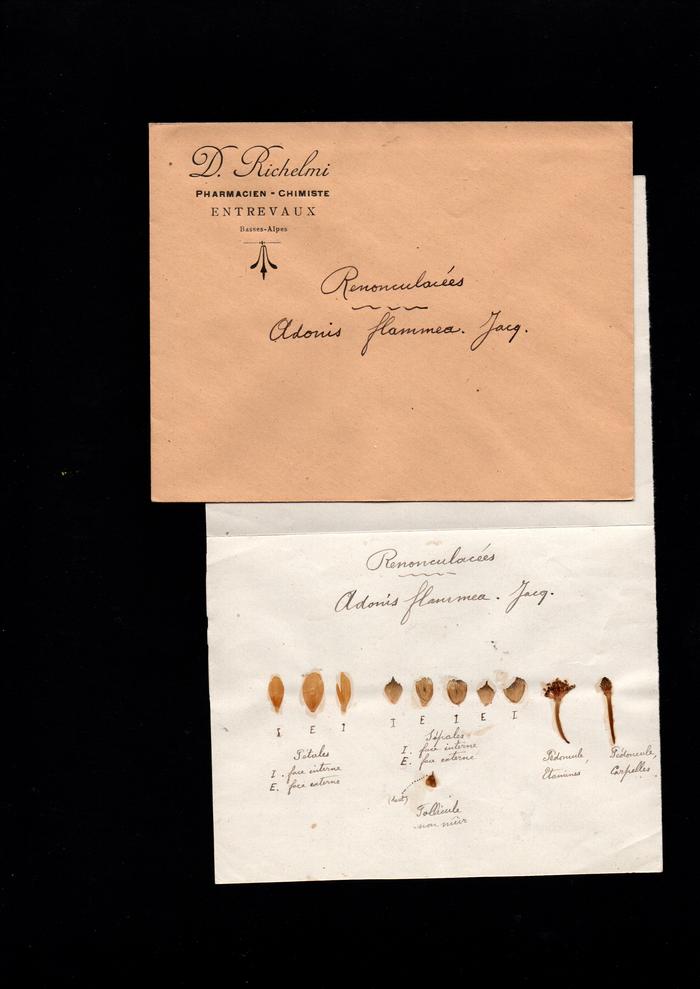 D. Richelmi
PHARMACIEN - CHIMISTE
ENTREVAUX
Basses-Alpes
Renonculacées
Adonis flammea. Jacq.
Renonculacées
Adonis flammea. Jacq.
I E I
Pétales
I. face interne
E. face externe
I E I E I
Sépales
I. face interne
E. face externe
Pédoncule,
Etamines
Pédoncule,
Carpelles
Follicule
non mûr